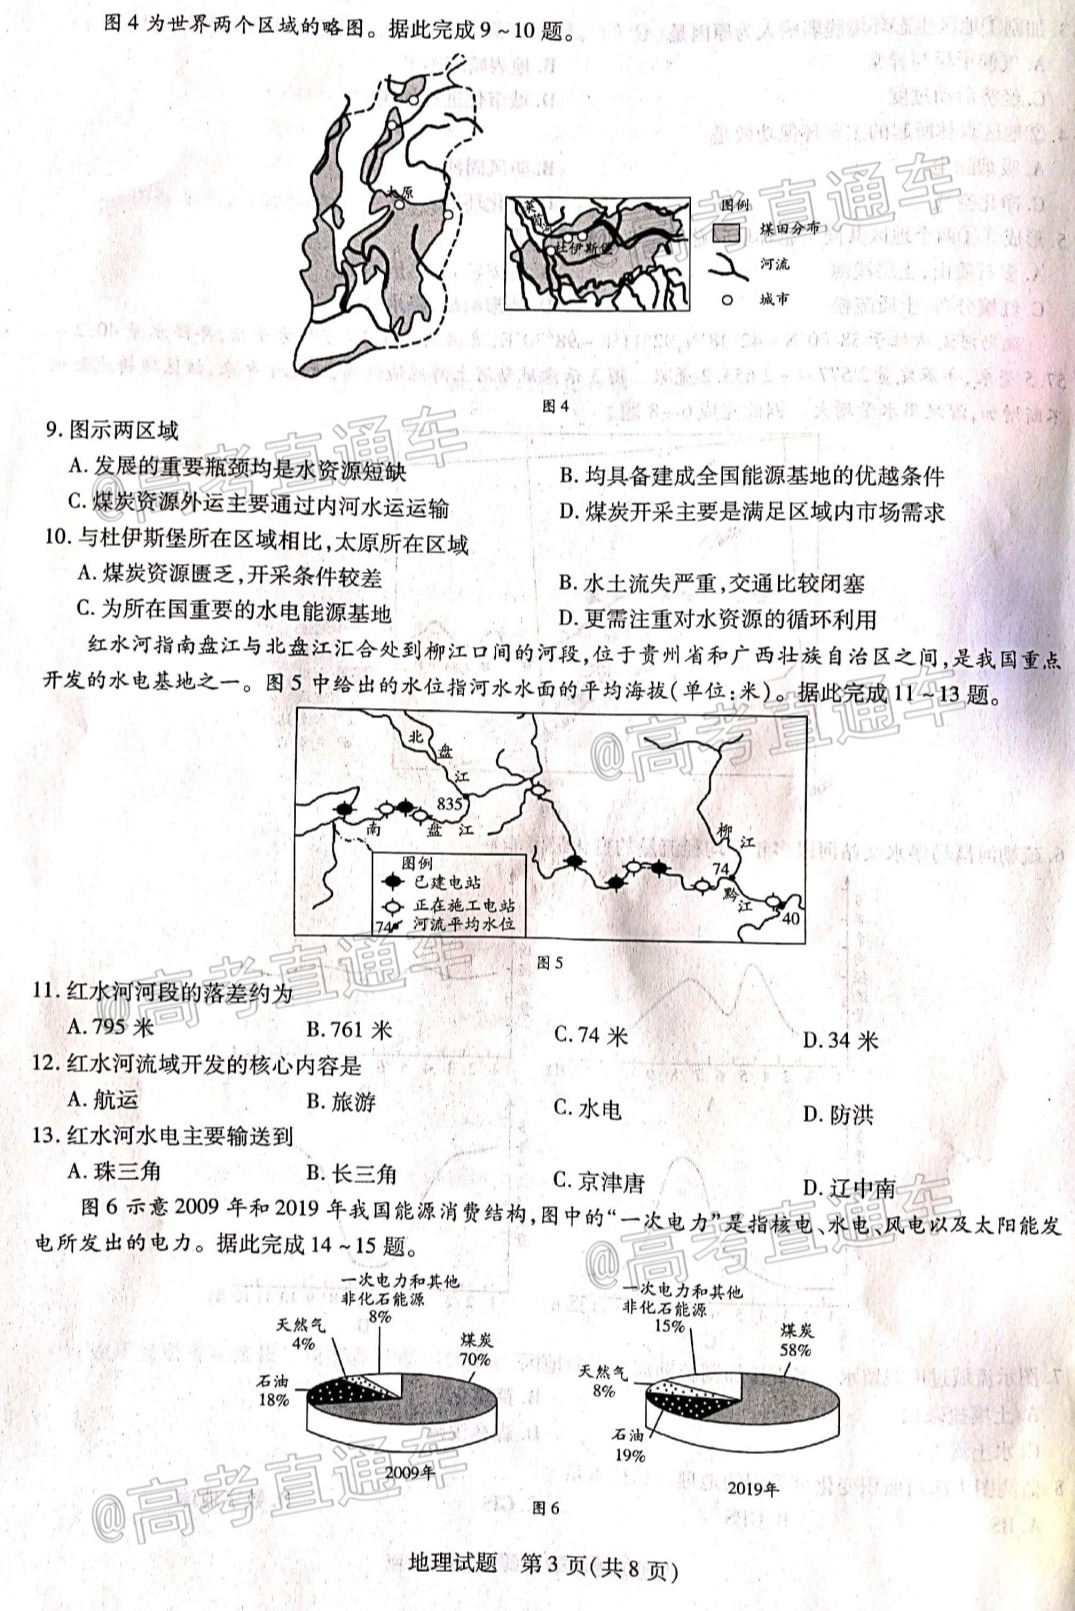 图 4 为世界两个区域的略图。据此完成 9～10 题。
太原
莱茵河
杜伊斯堡
图例
煤田分布
河流
城市
图 4
9. 图示两区域
A. 发展的重要瓶颈均是水资源短缺
B. 均具备建成全国能源基地的优越条件
C. 煤炭资源外运主要通过内河水运运输
D. 煤炭开采主要是满足区域内市场需求
10. 与杜伊斯堡所在区域相比,太原所在区域
A. 煤炭资源匮乏,开采条件较差
B. 水土流失严重,交通比较闭塞
C. 为所在国重要的水电能源基地
D. 更需注重对水资源的循环利用
红水河指南盘江与北盘江汇合处到柳江口间的河段,位于贵州省和广西壮族自治区之间,是我国重点
开发的水电基地之一。图 5 中给出的水位指河水水面的平均海拔(单位:米)。据此完成 11～13 题。
北盘江
835
南盘江
柳江
74
黔江
40
图例
已建电站
正在施工电站
74 河流平均水位
图 5
11. 红水河河段的落差约为
A. 795 米
B. 761 米
C. 74 米
D. 34 米
12. 红水河流域开发的核心内容是
A. 航运
B. 旅游
C. 水电
D. 防洪
13. 红水河水电主要输送到
A. 珠三角
B. 长三角
C. 京津唐
D. 辽中南
图 6 示意 2009 年和 2019 年我国能源消费结构,图中的“一次电力”是指核电、水电、风电以及太阳能发
电所发出的电力。据此完成 14～15 题。
一次电力和其他
非化石能源
8%
天然气
4%
石油
18%
煤炭
70%
2009年
一次电力和其他
非化石能源
15%
天然气
8%
石油
19%
煤炭
58%
2019年
图 6
地理试题 第 3 页(共 8 页)
@高考直通车
@高考直通车
@高考直通车
@高考直通车
@高考直通车
@高考直通车